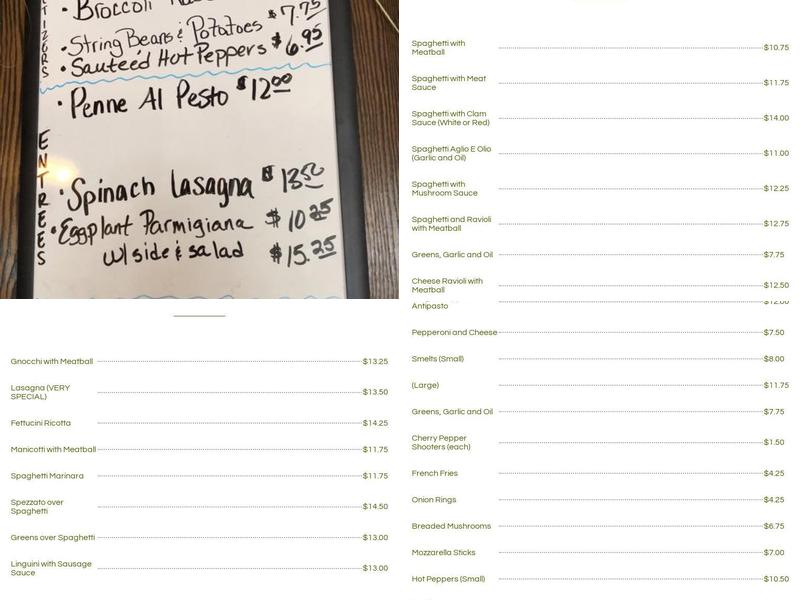 • Broccoli
$7.75
• String Beans & Potatoes
• Sauteéd Hot Peppers $6.95
• Penne Al Pesto $12.00
ENTREES
• Spinach Lasagna $13.50
• Eggplant Parmigiana $10.25
w/ side & salad $15.25
Spaghetti with
Meatball $10.75
Spaghetti with Meat
Sauce $11.75
Spaghetti with Clam
Sauce (White or Red) $14.00
Spaghetti Aglio E Olio
(Garlic and Oil) $11.00
Spaghetti with
Mushroom Sauce $12.25
Spaghetti and Ravioli
with Meatball $12.75
Greens, Garlic and Oil $7.75
Cheese Ravioli with
Meatball $12.50
Gnocchi with Meatball $13.25
Lasagna (VERY
SPECIAL) $13.50
Fettucini Ricotta $14.25
Manicotti with Meatball $11.75
Spaghetti Marinara $11.75
Spezzato over
Spaghetti $14.50
Greens over Spaghetti $13.00
Linguini with Sausage
Sauce $13.00
Antipasto
Pepperoni and Cheese $7.50
Smelts (Small) $8.00
(Large) $11.75
Greens, Garlic and Oil $7.75
Cherry Pepper
Shooters (each) $1.50
French Fries $4.25
Onion Rings $4.25
Breaded Mushrooms $6.75
Mozzarella Sticks $7.00
Hot Peppers (Small) $10.50